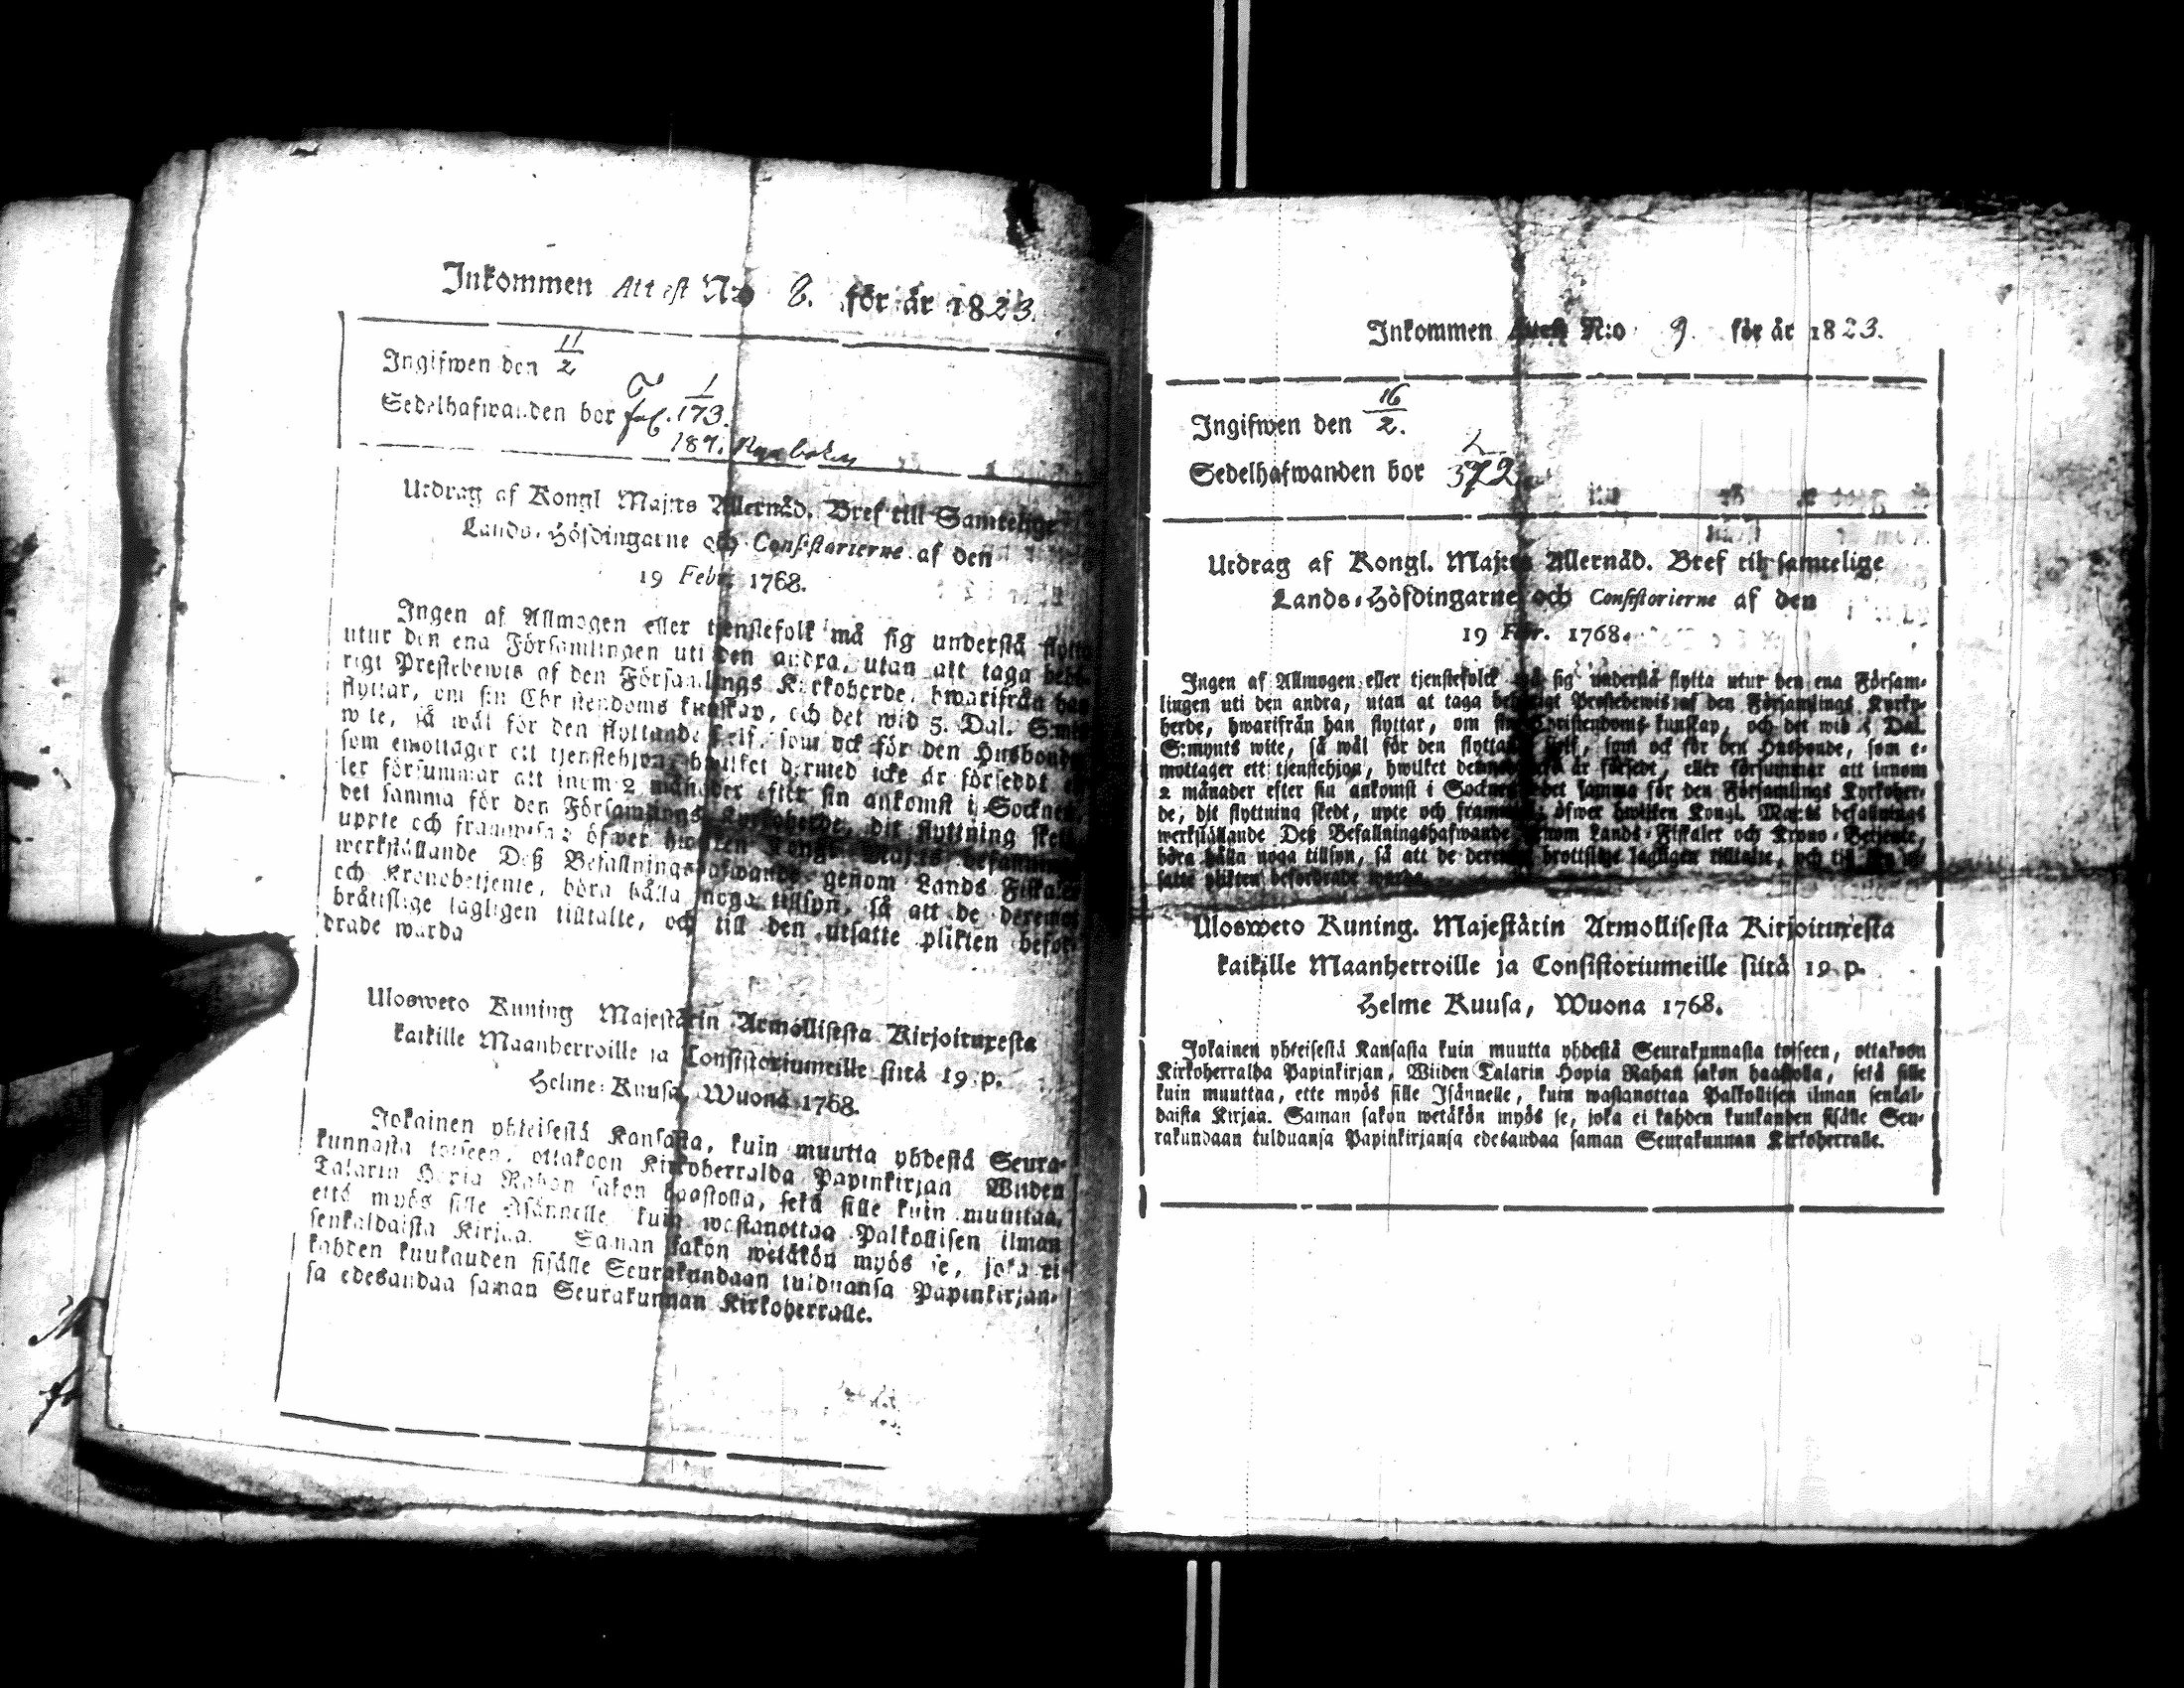 Inkommen Attest N:o 8. för år 1823.
Ingifwen den 11/2
Sedelhafwanden bor fol. 173.
187.
Utdrag af Kongl Maj:ts Allernåd. Bref till Samtelige
Lands-Höfdingarne och Consistorierne af den
19 Febr. 1768.
Ingen af Allmogen eller tjenstefolk må sig understå flytta
utur den ena Församlingen uti den andra, utan att taga behö-
rigt Prestebewis af den Församlings Kyrkoherde, hwarifrån han
flyttar, om sin Christendoms kunskap, och det wid 5. Dal. S:mts
wite, så wäl för den flyttande sjelf, som ock för den Husbonde
som emottager ett tjenstehjon, hwilket dermed icke är försedt el-
ler försummar att inom 2 månader efter sin ankomst i Socknen,
det samma för den Församlings Kyrkoherde, dit flyttning skedt
uppte och framwisa: öfwer hwilken Kongl. Maj:ts befallnings
werkställande Deß Befallningshafwande genom Lands Fiskaler
och Kronobetjente, böra hålla noga tillsyn, så att de deremot
bråttslige lagligen tilltalte, och till den utsatte plikten befor-
drade warda
Ulosweto Kuning Majestätin Armollisesta Kirjoituxesta
kaikille Maanherroille ja Consistoriumeille siitä 19 p.
Helme-Kuusa, Wuona 1768.
Jokainen yhteisestä Kansasta, kuin muutta yhdestä Seura-
kunnasta toiseen, ottakoon Kirkoherralda Papinkirjan Wiiden
Talarin Hopia Rahan sakon haastolla, sekä sille kuin muuttaa,
että myös sille Isännelle kuin wastanottaa Palkollisen ilman
senkaldaista Kirjaa. Saman sakon wetäkön myös se, joka ei
kahden kuukauden sisälle Seurakundaan tulduansa Papinkirjan-
sa edesandaa saman Seurakunnan Kirkoherralle.
Inkommen Attest N:o 9. för år 1823.
Ingifwen den 16/2.
Sedelhafwanden bor 372
Utdrag af Kongl. Maj:ts Allernåd. Bref till samtelige
Lands-Höfdingarne och Consistorierne af den
19 Febr. 1768.
Ingen af Allmogen eller tjenstefolck må sig understå flytta utur den ena Försam-
lingen uti den andra, utan at taga behörigt Prestebewis af den Församlings Kyrko-
herde, hwarifrån han flyttar, om sin Christendoms kunskap, och det wid 5 Dal.
S:mynts wite, så wäl för den flyttande sjelf, som ock för den Husbonde, som e-
mottager ett tjenstehjon, hwilket dermed icke är försedt, eller försummar att innom
2 månader efter sin ankomst i Socknen, det samma för den Församlings Kyrkoher-
de, dit flyttning skedt, upte och framwisa; öfwer hwilken Kongl. Maj:ts befallnings
werkställande Deß Befallningshafwande genom Lands-Fiskaler och Krono-Betjente,
böra hålla noga tillsyn, så att de deremot brottslige lagligen tilltalte, och till den ut-
satte plikten befordrade warda.
Ulosweto Kuning. Majestätin Armollisesta Kirjoituxesta
kaikille Maanherroille ja Consistoriumeille siitä 19. p.
Helme Kuusa, Wuona 1768.
Jokainen yhteisestä Kansasta kuin muutta yhdestä Seurakunnasta toiseen, ottakoon
Kirkoherralda Papinkirjan, Wiiden Talarin Hopia Rahan sakon haastolla, sekä sille
kuin muuttaa, ette myös sille Isännelle, kuin wastanottaa Palkollisen ilman senkal-
daista Kirjaa. Saman sakon wetäkön myös se, joka ei kahden kuukauden sisälle Seu-
rakundaan tulduansa Papinkirjansa edesandaa saman Seurakunnan Kirkoherralle.